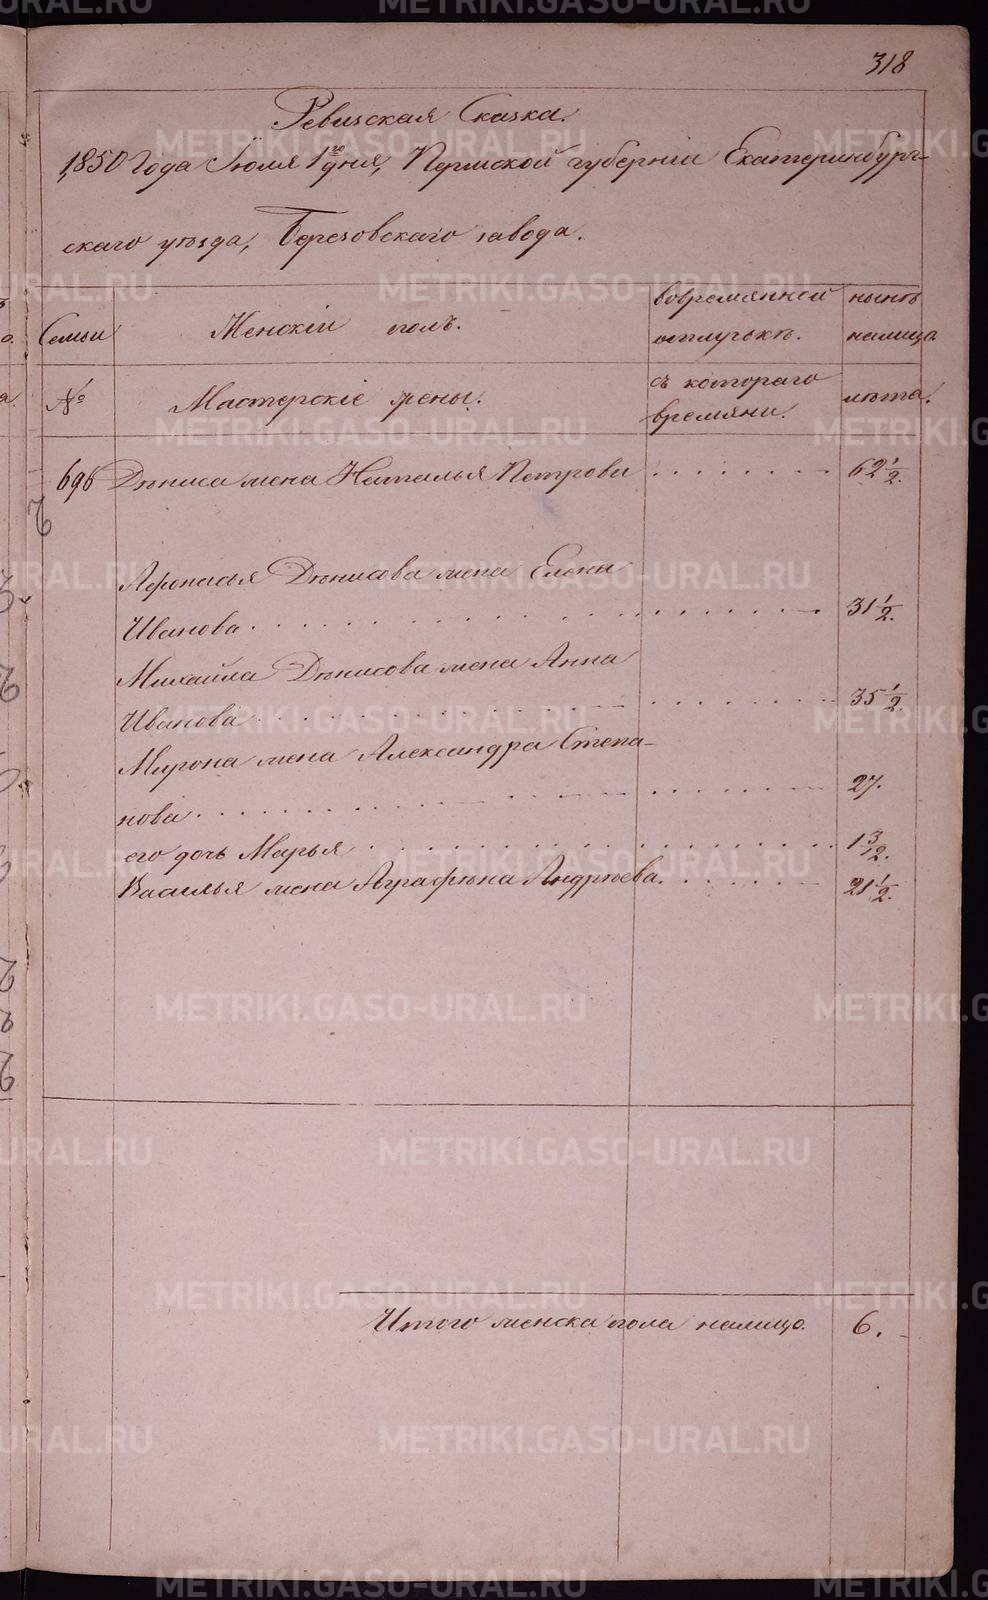 318
Ревизская Сказка.
1850 Года Іюля 1го дня, Пермской губерніи Екатеринбург-
скаго уѣзда, Березовскаго завода.
вовремянной нынѣ
Семьи Женскій полъ. отлучькѣ. налицо.
№ Мастерскіе жены. съ котораго лѣта.
времяни.
696 Дѣниса жена Наталья Петрова 62 1/2.
Афонасья Дѣнисова жена Елена
Иванова 31 1/2.
Михайла Дѣнисова жена Анна
Иванова 35 1/2.
Мирона жена Александра Степа-
нова 27.
его дочь Марья 1 3/12.
Василья жена Аграфѣна Андрѣева 21 1/2.
Итого женска пола налицо. 6.
METRIKI.GASO-URAL.RU